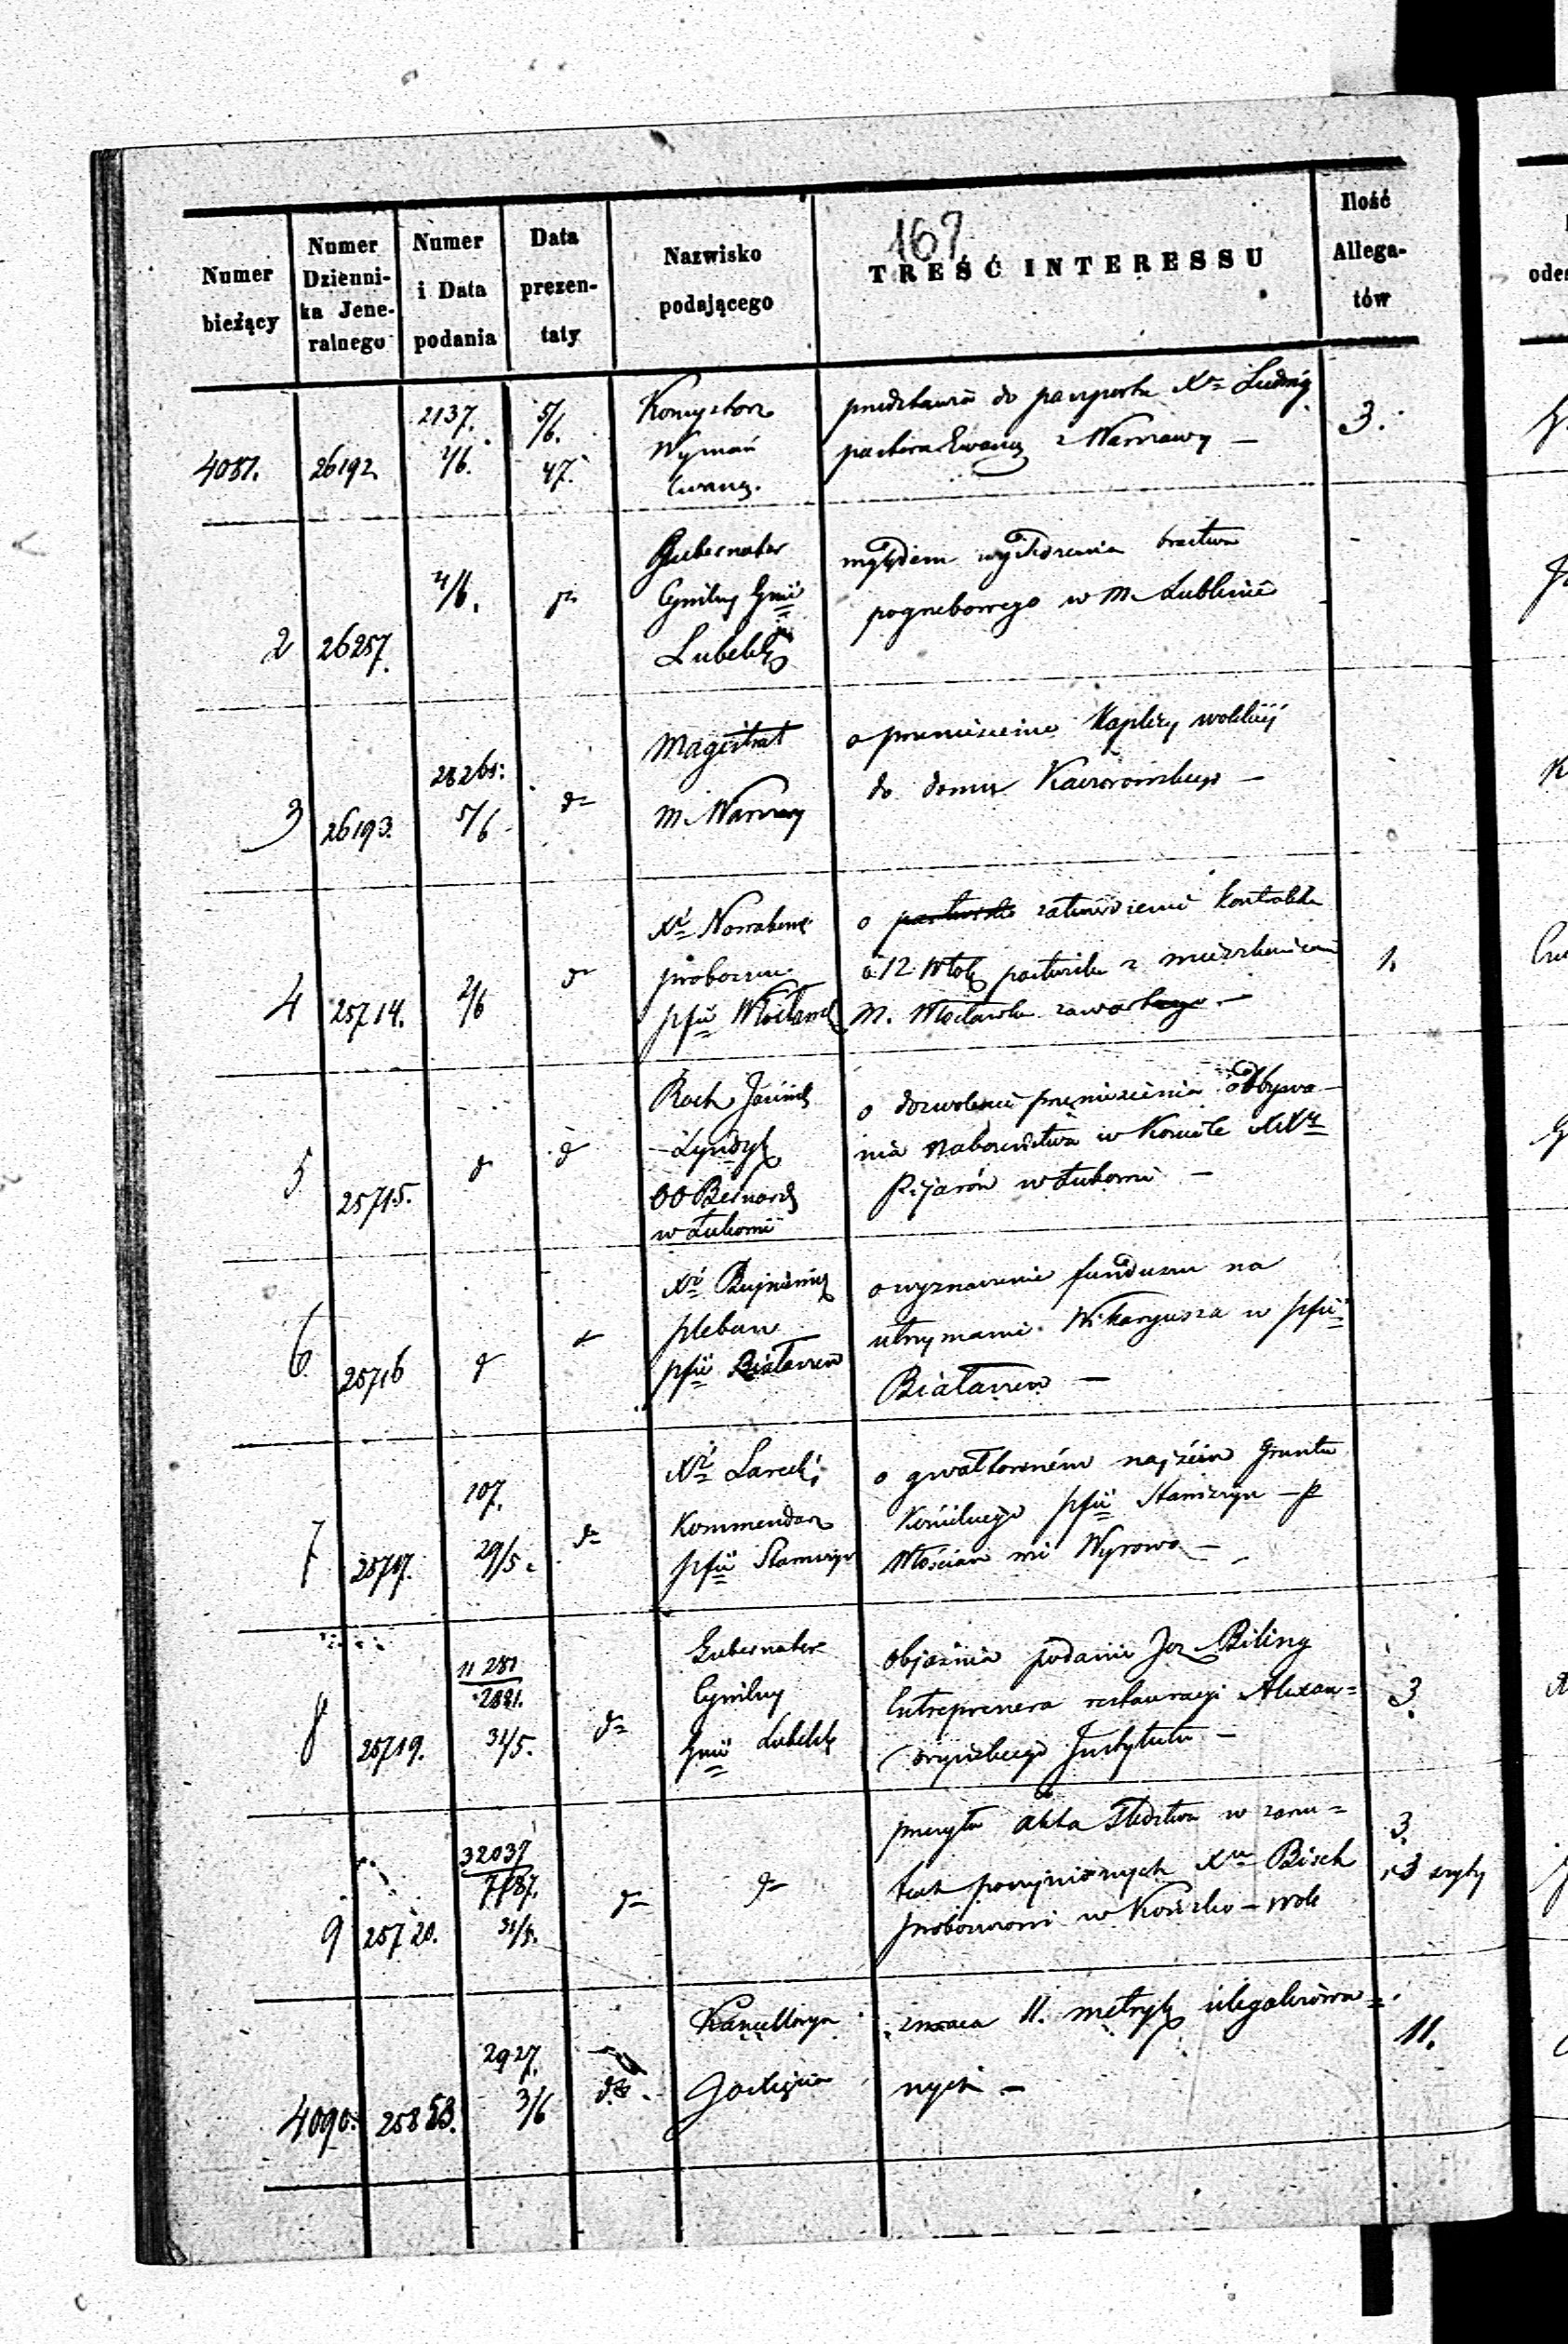 167
Numer bieżący
Numer Dzienni- ka Jene- ralnego
Numer i Data podania
Data prezen- taty
Nazwisko podającego
TREŚĆ INTERESSU
Ilość Allega- tów
4081. 26192. 2137. 2/6. 5/6. 47.
Konsystorz
Wyznań
Ewang.
przedstawia do paszportu Xa Ludwig
pastora Ewang z Warszawy —
3.
2 26257. 4/6. da
Gubernator
Cywilny Gnii
Lubelskiej
względem wystawienia bractwa
pogrzebowego w m. Lublinie
3 26193. 28261: 5/6 da
Magistrat
m. Warszawy
o przeniesienie Kaplicy wolskiej
do domu
4 25714. 2/6 da
Xd
proboszcz
pfii Włocławek
o pastwisko zatwierdzenie kontraktu
o 12 Włók pastwiska z mieszkańcami
m. Włocławka zawartego —
1.
5 25715. d d
Roch
Syndyk
OO Bernard
w Łukowie
o dozwolenie przeniesienia odbywa-
nia nabożeństwa w Kościele XXy
Pijarów w Łukowie —
6 25716 d d
Xd
pleban
pfii Białarzew
o wyznaczenie funduszu na
utrzymanie Wikaryusza w pfii
Białarzew —
7 25717. 107. 29/5. da
Xd
Kommendarz
pfii
o gwałtowném najściu Gruntu
Kościelnego pfii — p
Włościan wsi Wyrowo —
8 25719. 11281 2881. 31/5. da
Gubernator
Cywilny
Gnii Lubelsk
objaśnia podanie Joz Biling
Entreprenera restauracyi Alexan=
dryjskiego Instytutu —
3.
9 25720. 32037 7787. 31/5. da da
przesyła akta śledztwa w zarzu=
tach poczynionych Xu Bisch
proboszczowi w Końsko-woli
3.
i 3 szyty
4090. 25853. 2927. 3/6 da.
Kancellarya
zwraca 11. metryk ulegalizowa=
nych —
11.